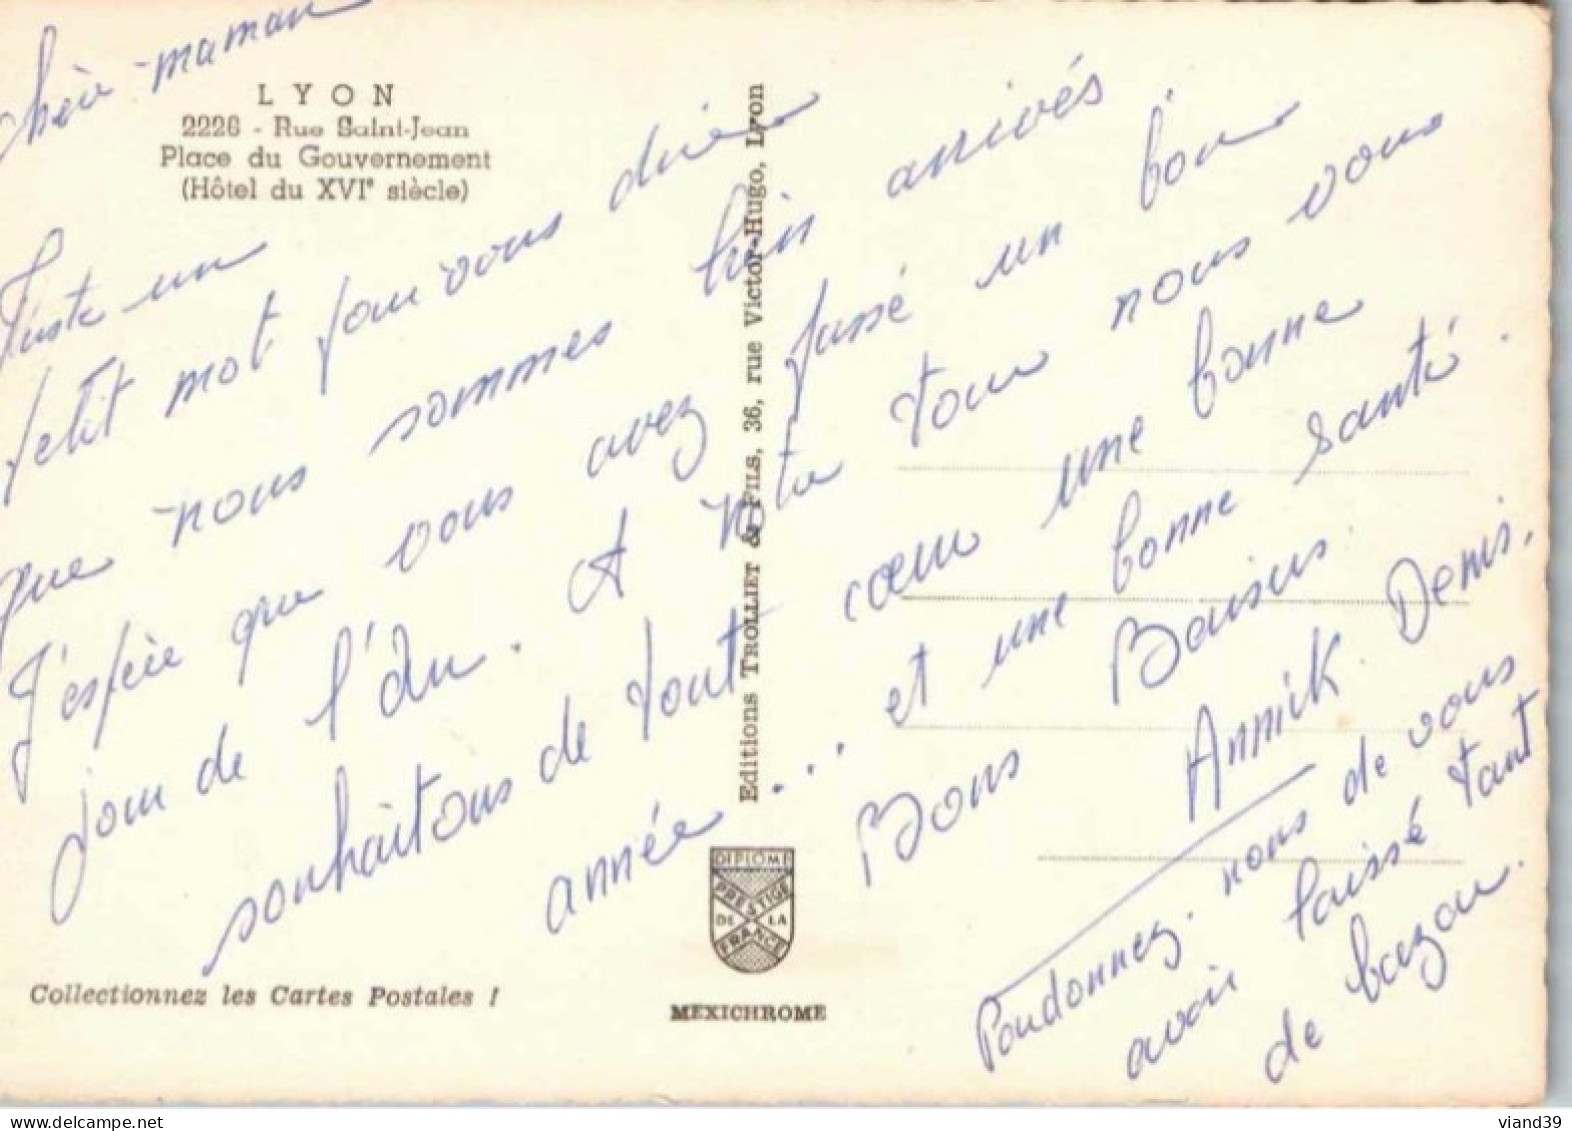 Chère maman
LYON
2226 - Rue Saint-Jean
Place du Gouvernement
(Hôtel du XVIe siècle)
Juste un
petit mot pour vous dire
que nous sommes bien arrivés
J'espère que vous avez passé un bon
jour de l'An. A notre tour nous vous
souhaitons de tout cœur une bonne
année... et une bonne santé.
Bons Baisers
Annick Denis.
Pardonnez-nous de vous
avoir laissé tant
de bazar.
Editions TROLLIET & FILS, 36, rue Victor-Hugo, Lyon
DIPLOME
PRESTIGE
DE LA
FRANCE
MEXICHROME
Collectionnez les Cartes Postales !
www.delcampe.net
viand39